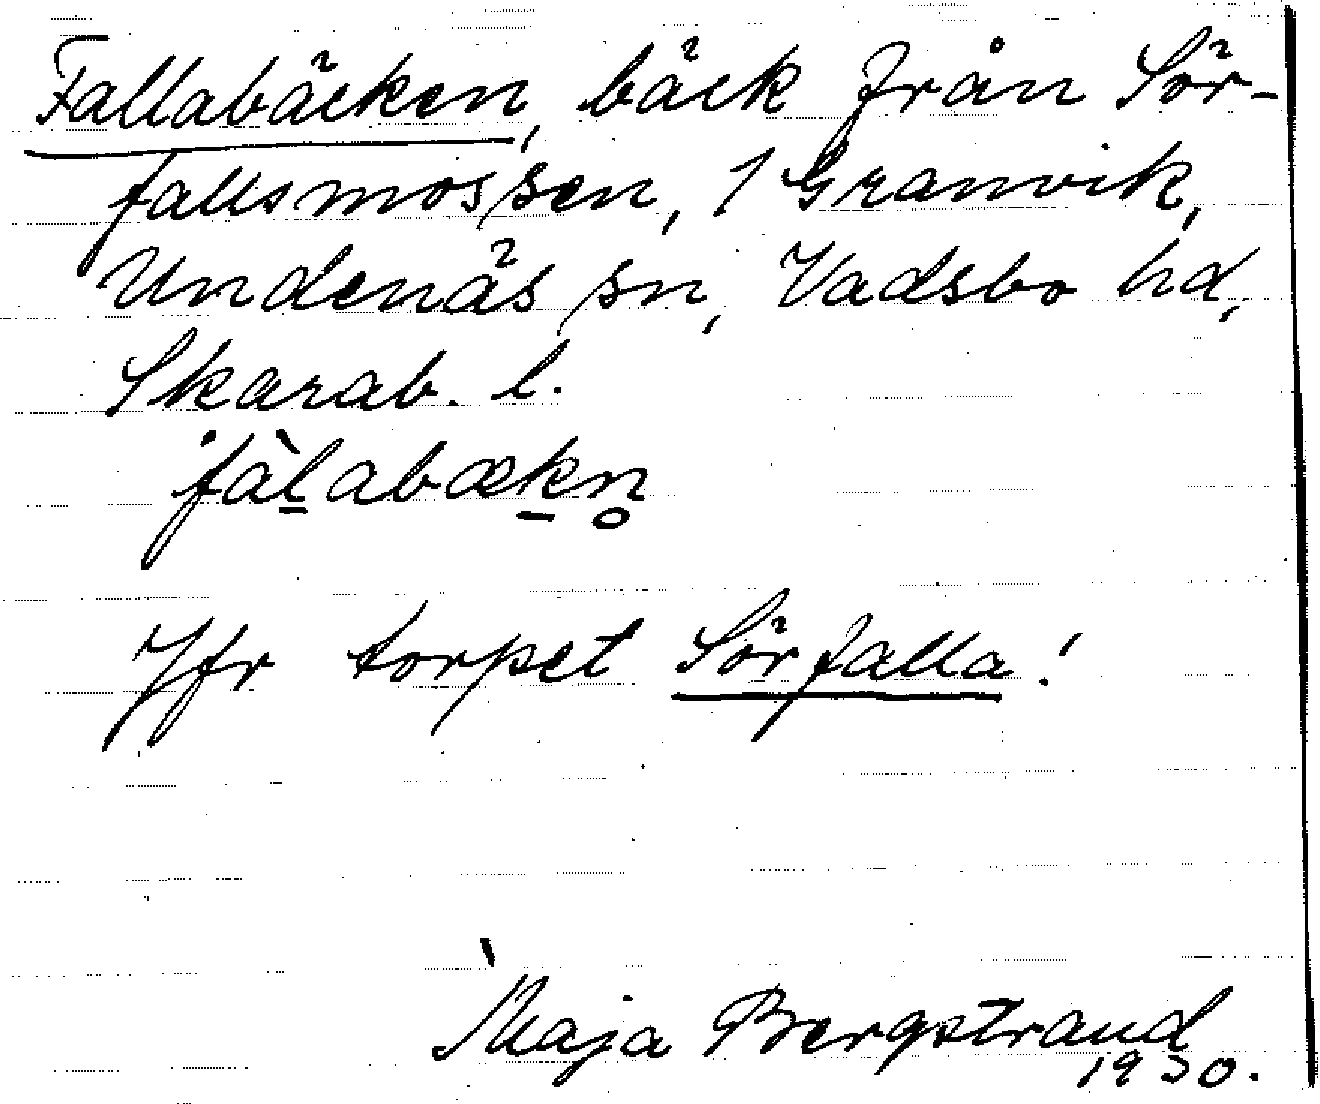 Fallabäcken, bäck från Sör-
fallsmossen, 1 Granvik,
Undenäs sn, Vadsbo hd,
Skarab. l.
fàl̠abæk̠n̥
Jfr torpet Sörfalla!
Maja Bergstrand
1930.